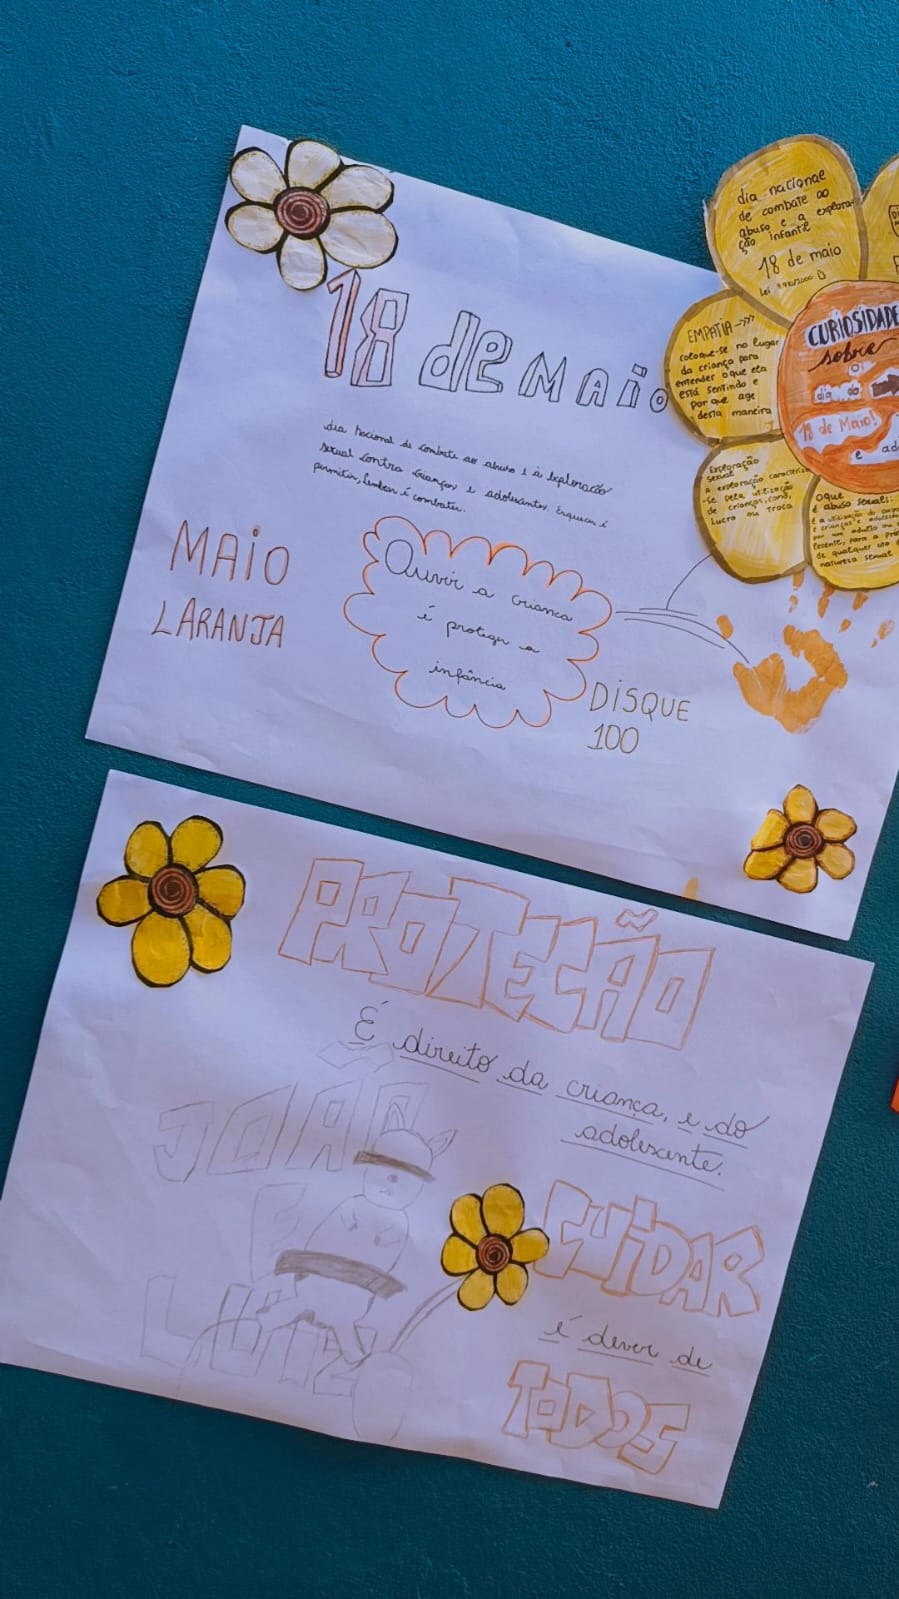 18 de MAIO
dia Nacional de combate ao abuso e à exploração
sexual contra crianças e adolescentes. Esquecer é
permitir, lembrar é combater.
MAIO
LARANJA
Ouvir a criança
é proteger a
infância
DISQUE
100
dia nacional
de combate ao
abuso e a explora-
ção infantil
18 de maio
Lei 9.970/2000
EMPATIA
coloque-se no lugar
da criança para
entender o que ela
está sentindo e
por que age
desta maneira
CURIOSIDADE
sobre
o
dia do
18 de Maio!
e
Exploração
sexual
A exploração caracteriza
-se pela utilização
de crianças, com,
lucro ou troca
O que
é abuso sexual:
é a utilização do corpo
por um adulto ou
de qualquer ato de
natureza sexual
PROTEÇÃO
É direito da criança, e do
adolescente.
JOÃO
E
LUIZ
CUIDAR
é dever de
TODOS